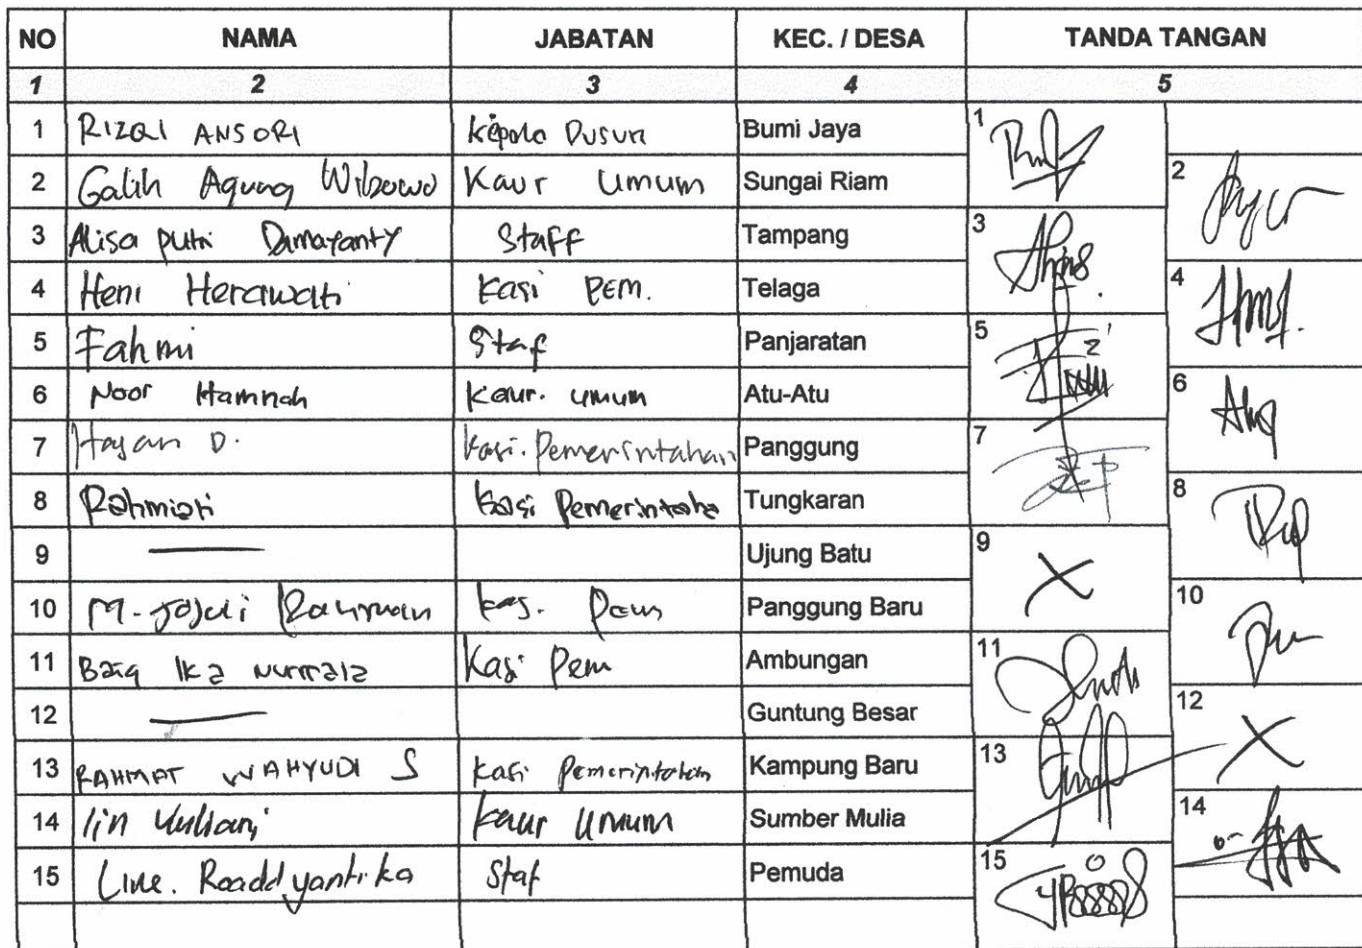 NO NAMA JABATAN KEC. / DESA TANDA TANGAN
1 2 3 4 5
1 RIZQI ANSORI Kepala Dusun Bumi Jaya 1
2 Galih Agung Wibowo Kaur Umum Sungai Riam 2
3 Alisa Putri Damayanty Staff Tampang 3
4 Heni Herawati Kasi PEM. Telaga 4
5 Fahmi Staf Panjaratan 5
6 Noor Hamnah Kaur. Umum Atu-Atu 6
7 Hasan D. Kasi. Pemerintahan Panggung 7
8 Rahmiati Kasi Pemerintaha Tungkaran 8
9 Ujung Batu 9 X
10 M. Rahman Kas. Pem Panggung Baru 10
11 Baiq Ika Nurmala Kasi Pem Ambungan 11
12 Guntung Besar 12 X
13 RAHMAT WAHYUDI S Kasi Pemerintahan Kampung Baru 13
14 Iin Yuliani Kaur Umum Sumber Mulia 14
15 Line. Roaddyantika Staf Pemuda 15